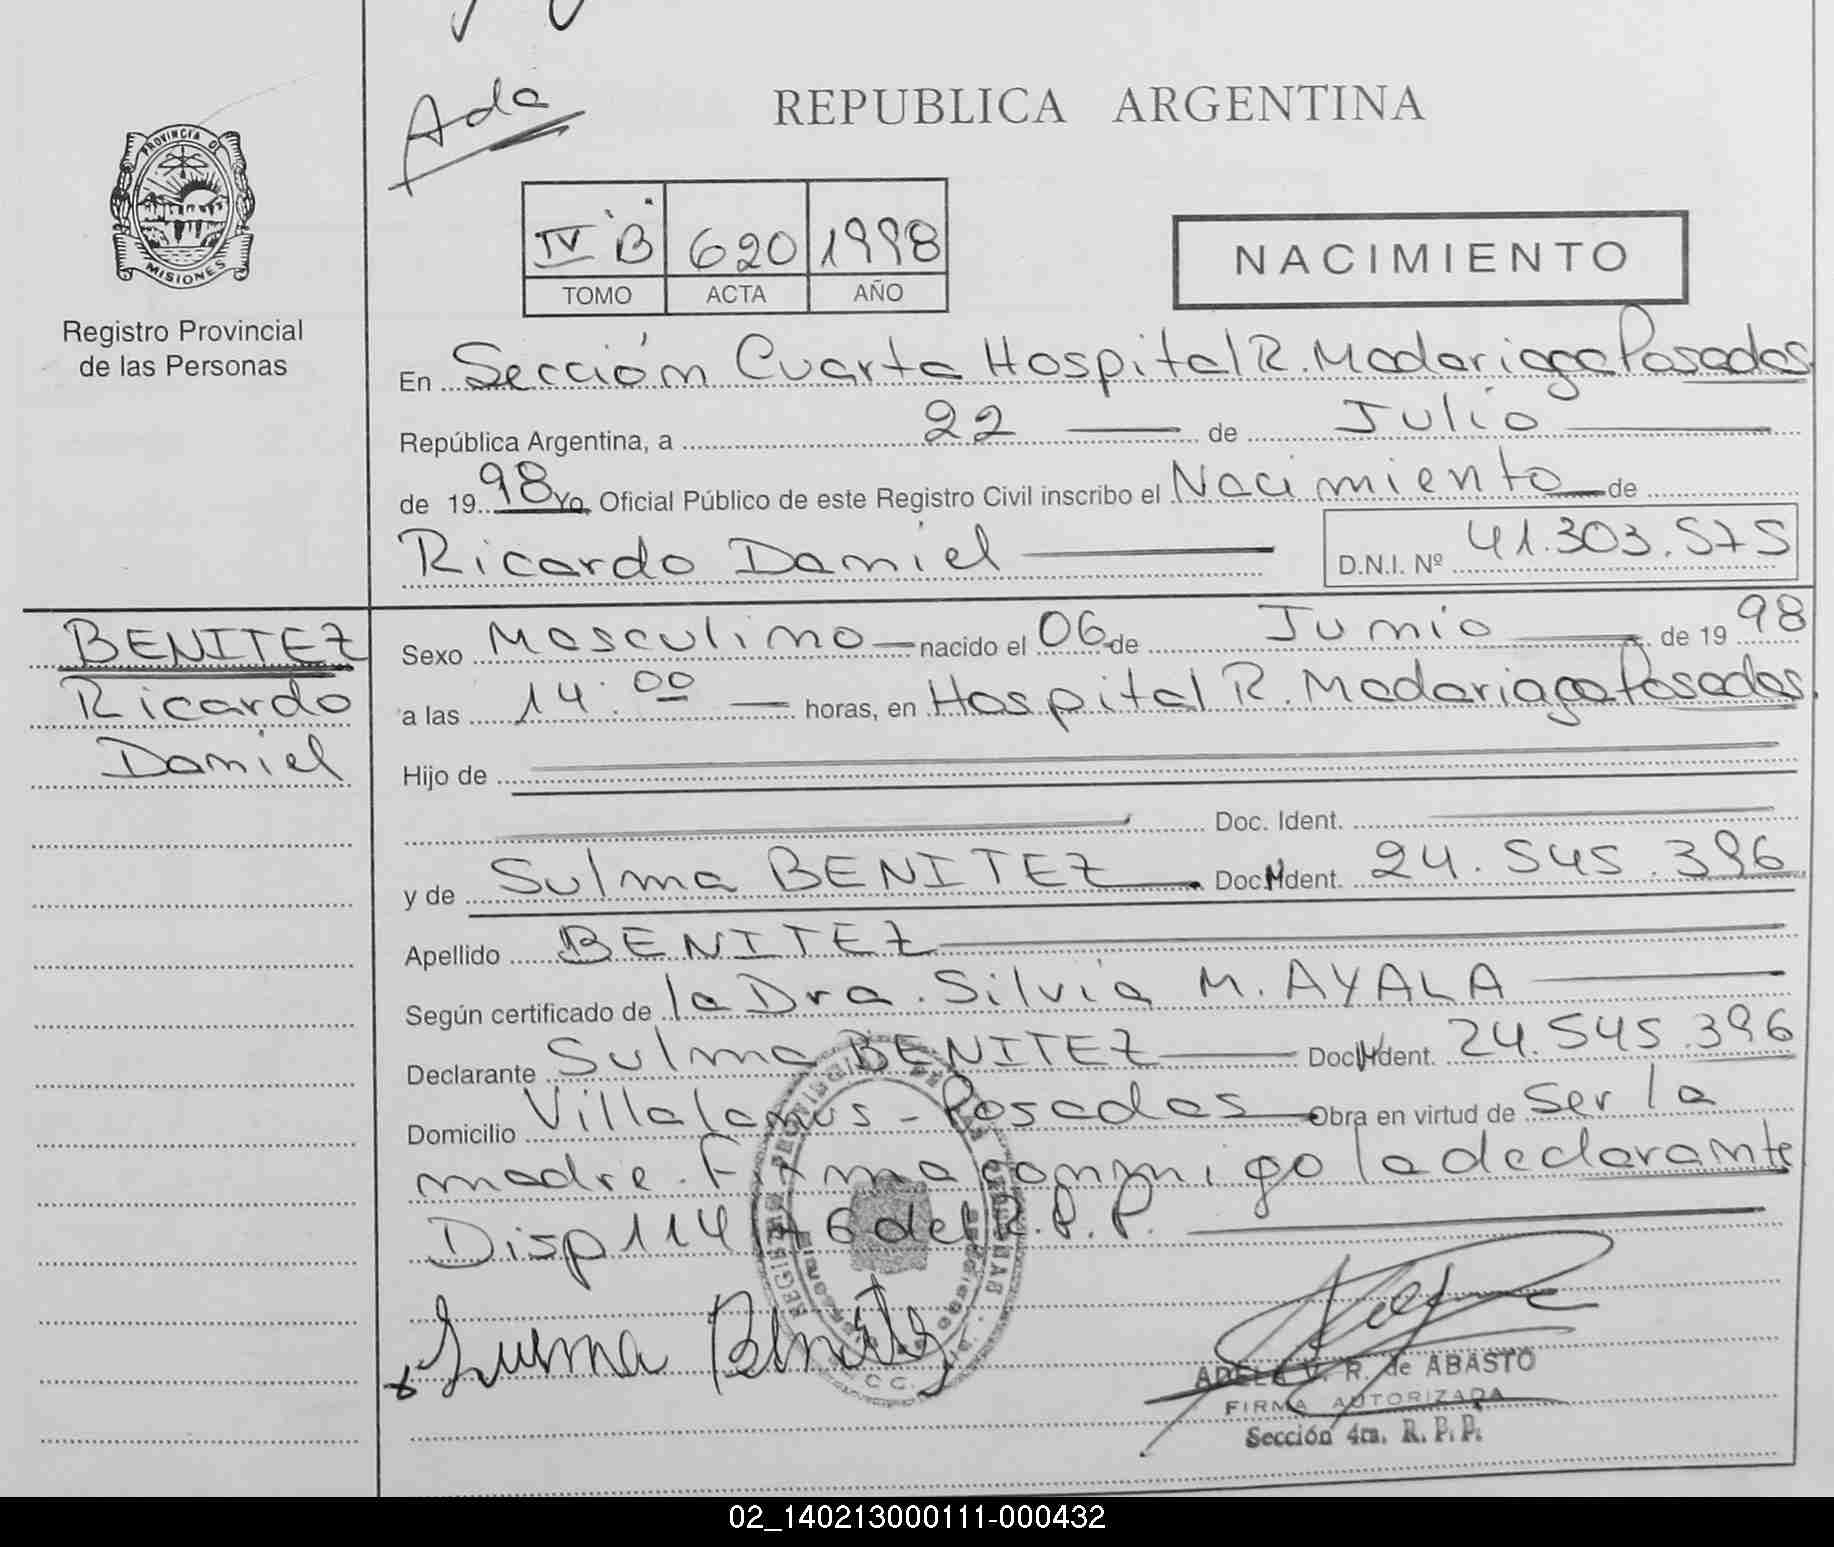 Ada
REPUBLICA ARGENTINA
PROVINCIA DE
MISIONES
Registro Provincial
de las Personas
IV B 620 1998
TOMO ACTA AÑO
NACIMIENTO
En Sección Cuarta Hospital R. Madariaga Posadas
República Argentina, a 22 de Julio
de 1998 Yo, Oficial Público de este Registro Civil inscribo el Nacimiento de
Ricardo Daniel D.N.I. Nº 41.303.575
BENITEZ
Ricardo
Daniel
Sexo Masculino nacido el 06 de Junio de 1998
a las 14:00 horas, en Hospital R. Madariaga Posadas.
Hijo de
Doc. Ident.
y de Sulma BENITEZ Doc. Ident. 24.545.396
Apellido BENITEZ
Según certificado de la Dra. Silvia M. AYALA
Declarante Sulma BENITEZ Doc. Ident. 24.545.396
Domicilio Villalanus - Posadas Obra en virtud de ser la
madre. Firma conmigo la declarante
Disp 114/76 del R.P.P.
Sulma Benitez
ADELA V. R. de ABASTO
FIRMA AUTORIZADA
Sección 4ta. R. P. P.
02_140213000111-000432